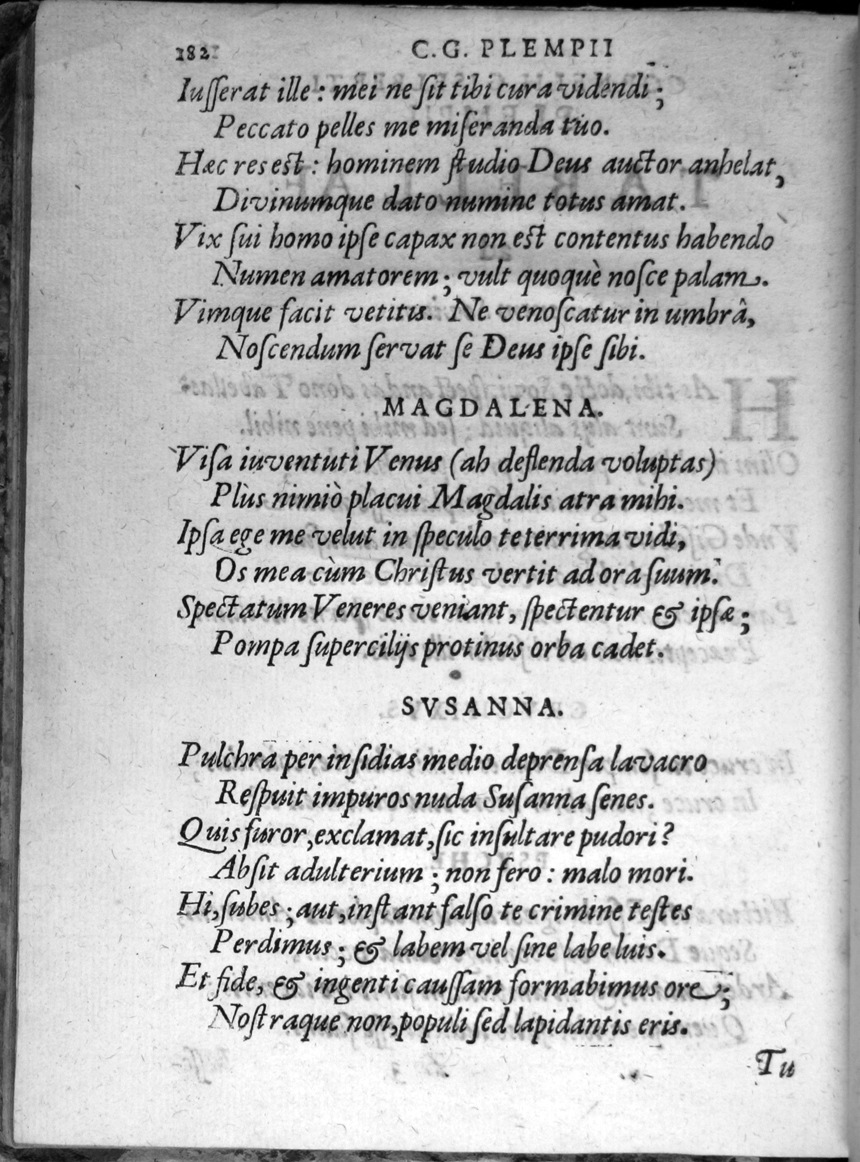 182 C.G. PLEMPII
Iuſſerat ille : mei ne ſit tibi cura videndi ;
Peccato pelles me miſeranda tuo.
Hæc res eſt : hominem ſtudio Deus auctor anhelat,
Divinumque dato numine totus amat.
Vix ſui homo ipſe capax non eſt contentus habendo
Numen amatorem ; vult quoquè noſce palam.
Vimque facit vetitis. Ne venoſcatur in umbrâ,
Noſcendum ſervat ſe Deus ipſe ſibi.
MAGDALENA.
Viſa iuventuti Venus (ah deflenda voluptas)
Plùs nimiò placui Magdalis atra mihi.
Ipſa ege me velut in ſpeculo teterrima vidi,
Os mea cùm Chriſtus vertit ad ora ſuum.
Spectatum Veneres veniant, ſpectentur & ipſæ ;
Pompa ſupercilijs protinus orba cadet.
SVSANNA.
Pulchra per inſidias medio deprenſa lavacro
Reſpuit impuros nuda Suſanna ſenes.
Quis furor, exclamat, ſic inſultare pudori ?
Abſit adulterium ; non fero : malo mori.
Hi, ſubes ; aut, inſtant falſo te crimine teſtes
Perdimus ; & labem vel ſine labe luis.
Et fide, & ingenti cauſſam formabimus ore ;
Noſtraque non, populi ſed lapidantis eris.
Tu